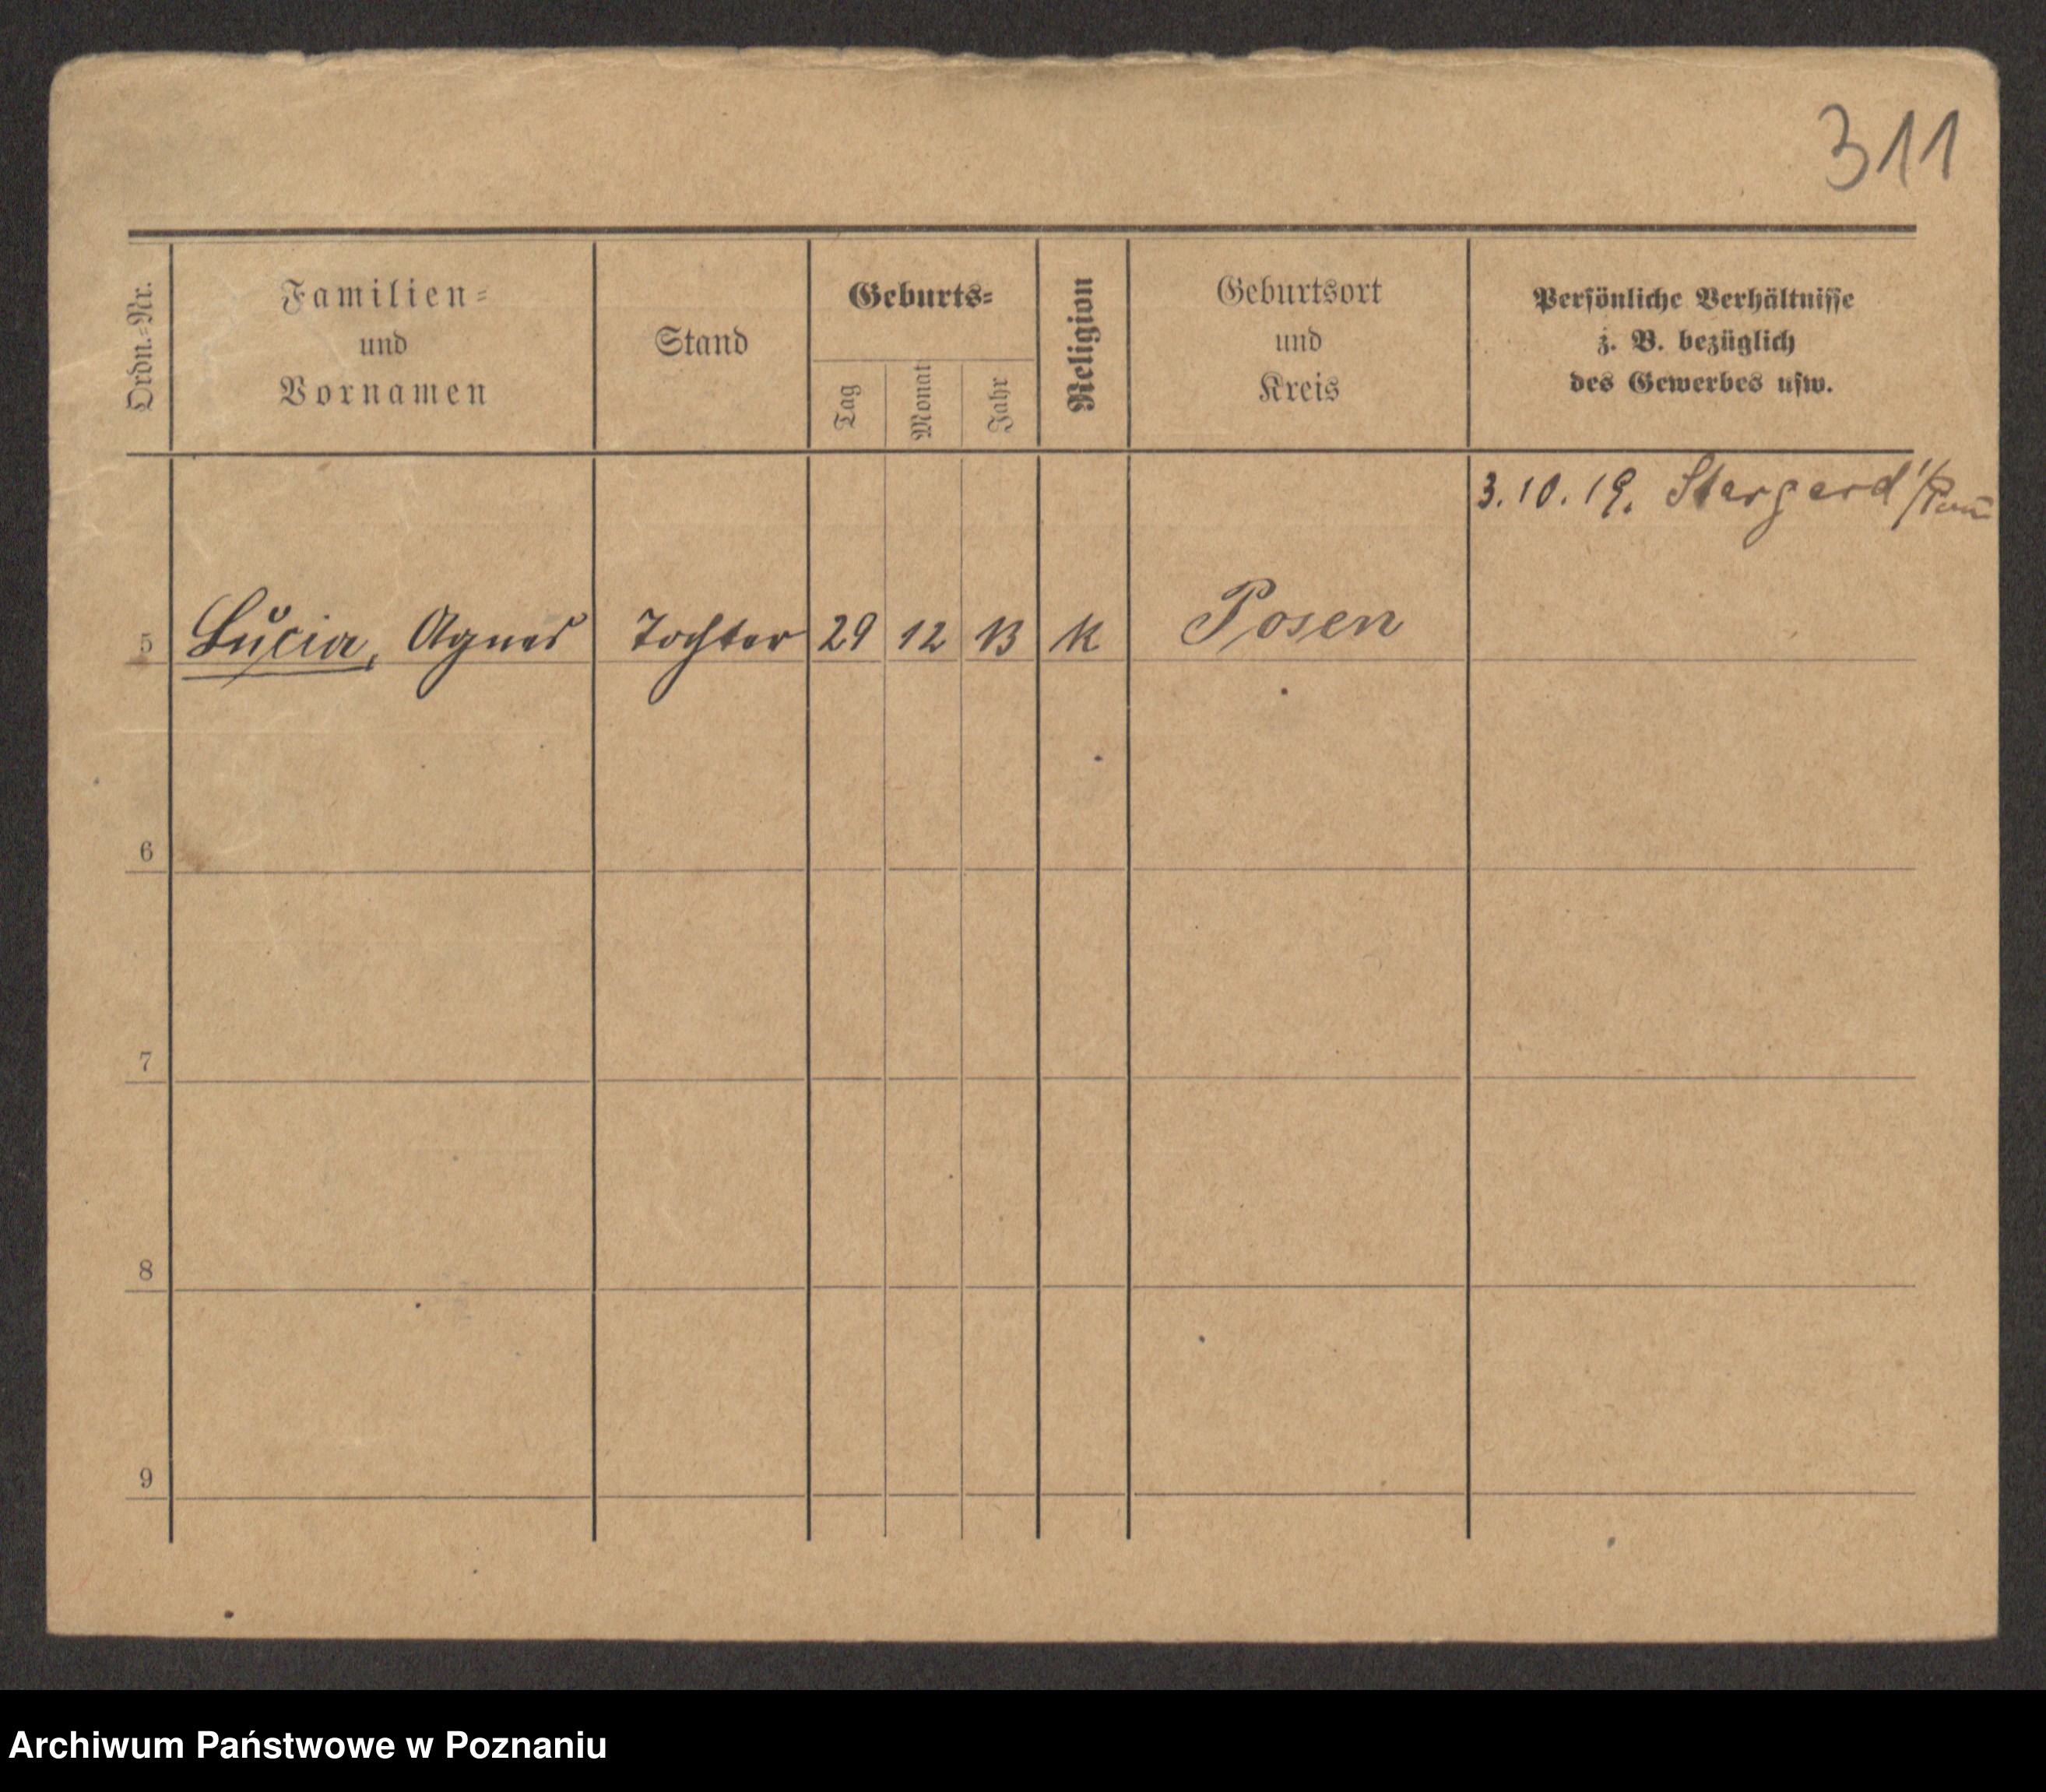 311
Ordn.-Nr.
Familien-
und
Vornamen
Stand
Geburts-
Tag
Monat
Jahr
Religion
Geburtsort
und
Kreis
Persönliche Verhältnisse
z. B. bezüglich
des Gewerbes usw.
3.10.19. Stargard i/Pom
5 Lucia, Agnes Tochter 29 12 13 K Posen
6
7
8
9
Archiwum Państwowe w Poznaniu